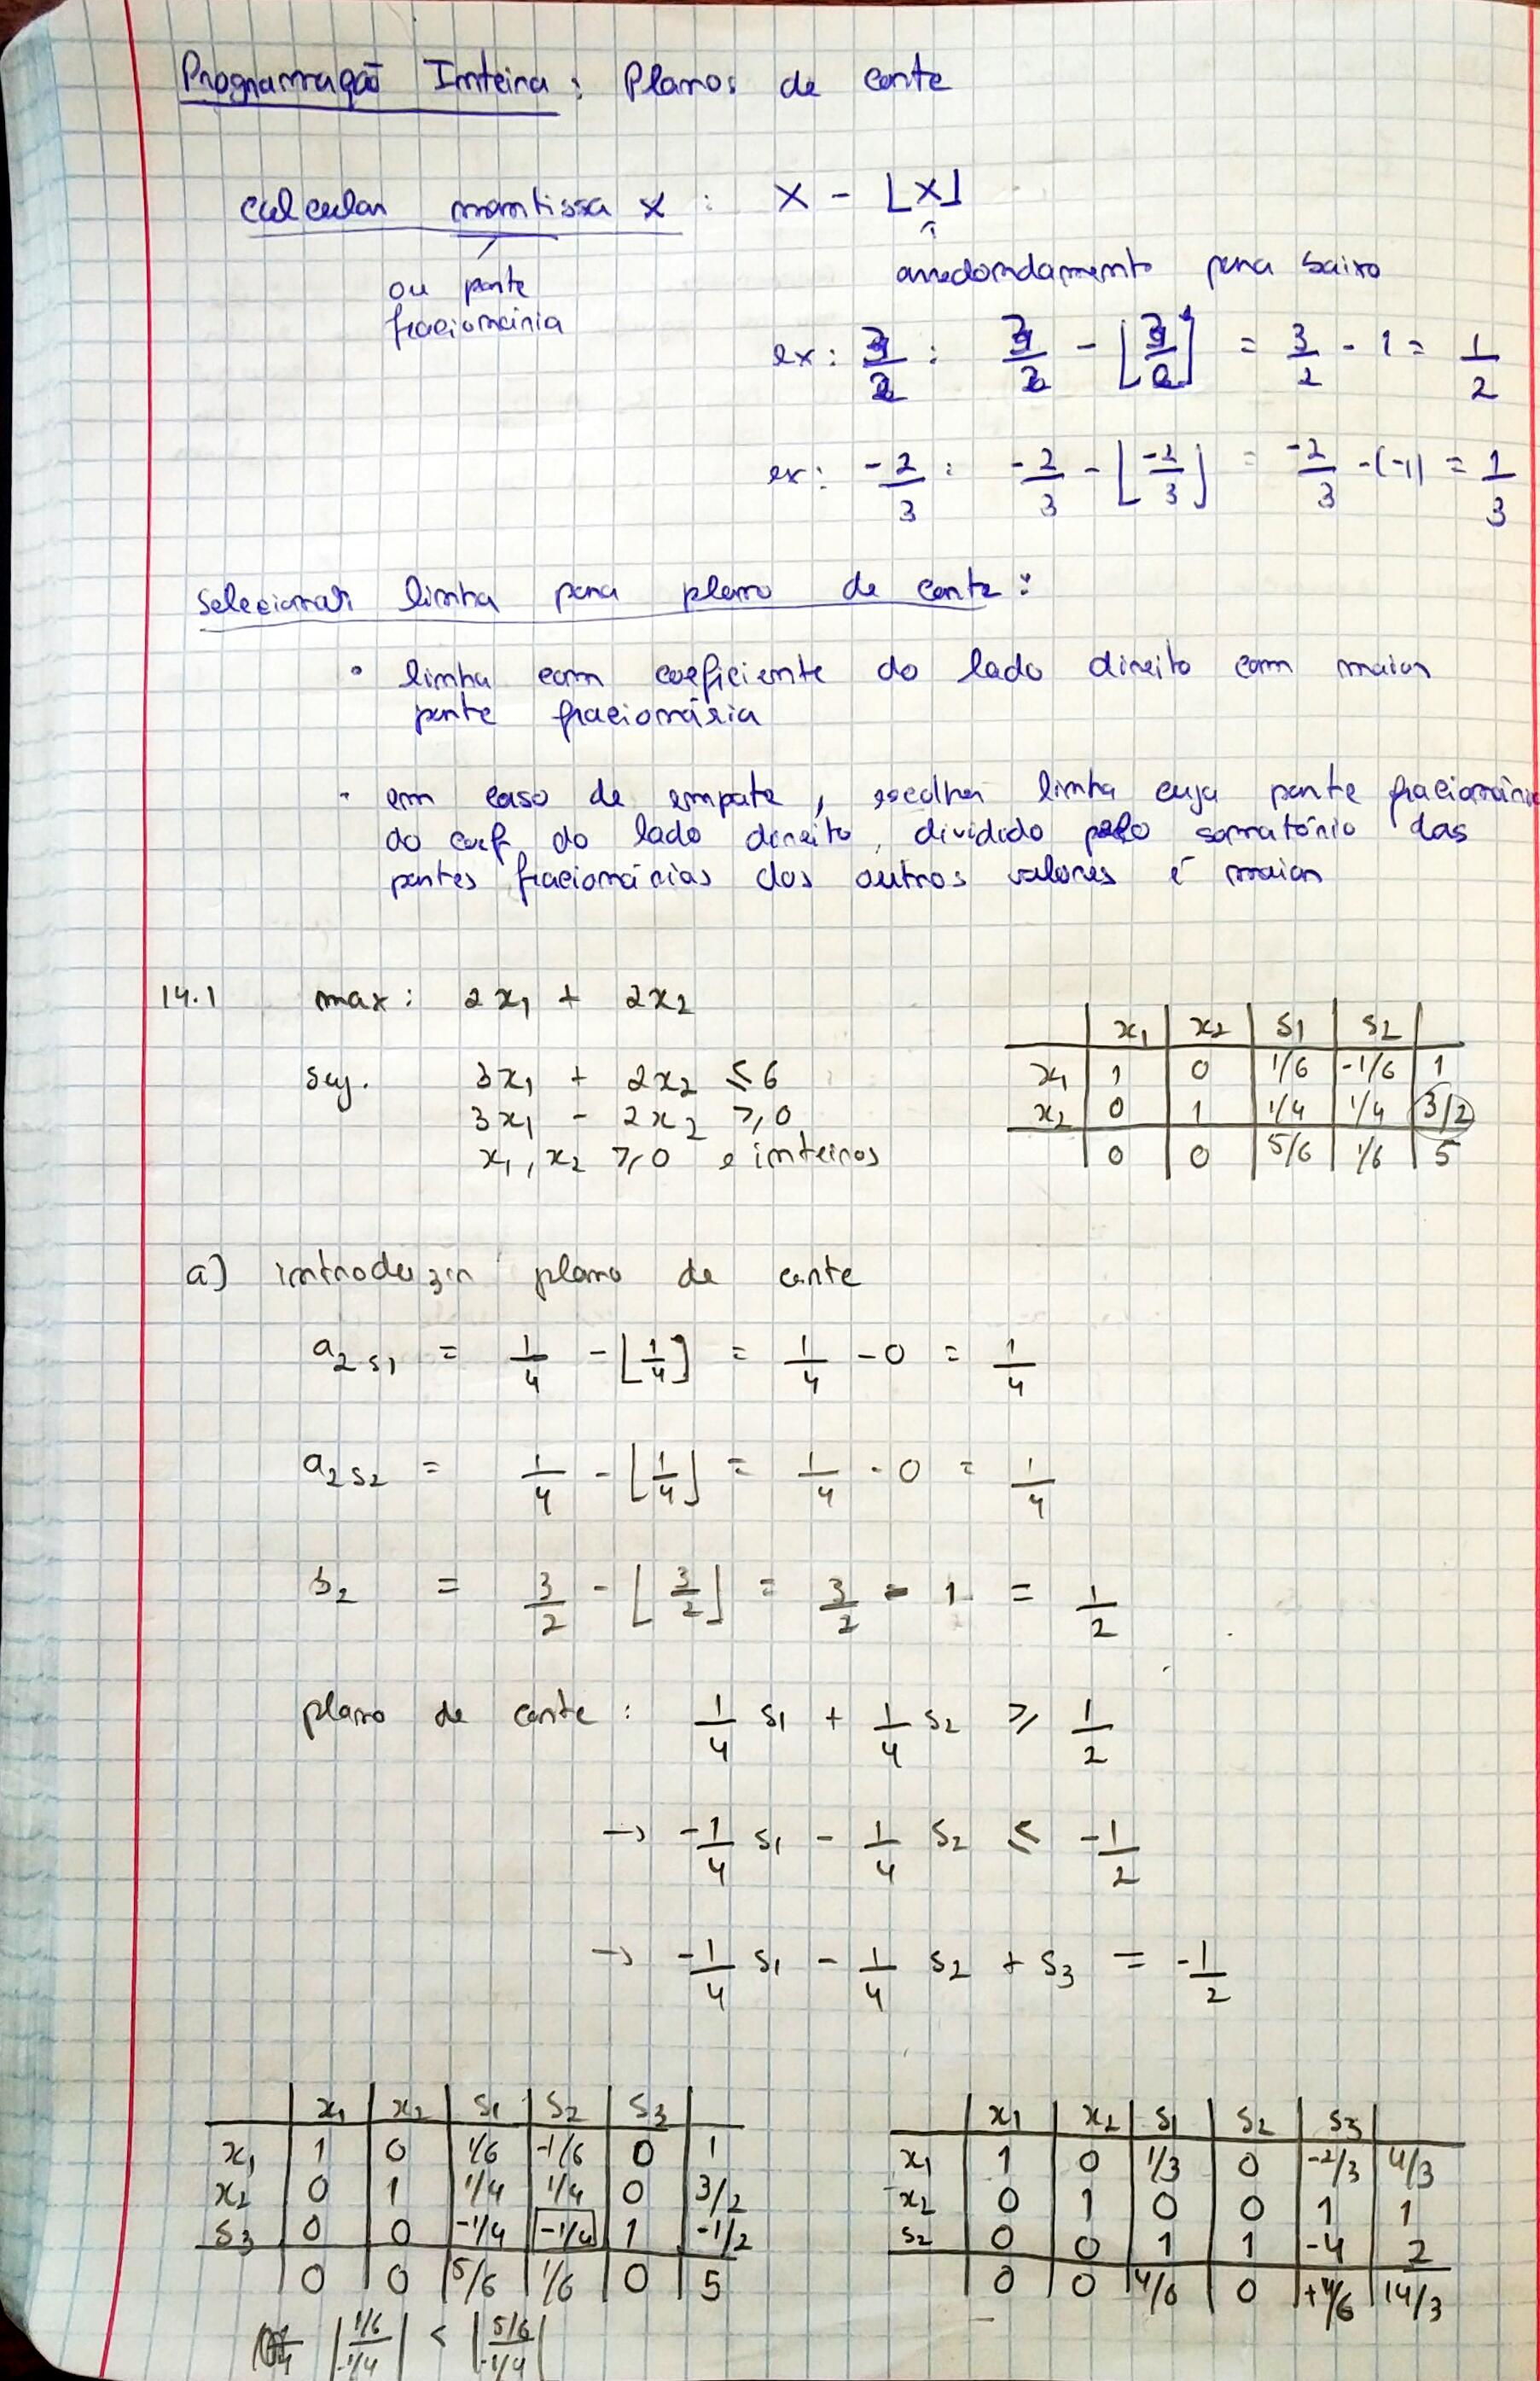 Programação Inteira: Planos de corte
calcular mantissa x : x - ⌊x⌋
ou parte
fracionária
arredondamento para baixo
ex: 3/2 : 3/2 - ⌊3/2⌋ = 3/2 - 1 = 1/2
ex: -2/3 : -2/3 - ⌊-2/3⌋ = -2/3 - (-1) = 1/3
Selecionar linha para plano de corte:
• linha com coeficiente do lado direito com maior
parte fracionária
- em caso de empate, escolher linha cuja parte fracionária
do coef. do lado direito, dividido pelo somatório das
partes fracionárias dos outros valores é maior
14.1 max: 2x₁ + 2x₂
suj. 3x₁ + 2x₂ ≤ 6
3x₁ - 2x₂ ≥ 0
x₁, x₂ ≥ 0 e inteiros
x₁ x₂ s1 s2
x₁ 1 0 1/6 -1/6 1
x₂ 0 1 1/4 1/4 3/2
0 0 5/6 1/6 5
a) introduzir plano de corte
a₂s₁ = 1/4 - ⌊1/4⌋ = 1/4 - 0 = 1/4
a₂s₂ = 1/4 - ⌊1/4⌋ = 1/4 - 0 = 1/4
b₂ = 3/2 - ⌊3/2⌋ = 3/2 - 1 = 1/2
plano de corte: 1/4 s₁ + 1/4 s₂ ≥ 1/2
→ -1/4 s₁ - 1/4 s₂ ≤ -1/2
→ -1/4 s₁ - 1/4 s₂ + s₃ = -1/2
x₁ x₂ s₁ s₂ s₃
x₁ 1 0 1/6 -1/6 0 1
x₂ 0 1 1/4 1/4 0 3/2
s₃ 0 0 -1/4 -1/4 1 -1/2
0 0 5/6 1/6 0 5
|1/6 / -1/4| < |5/6 / -1/4|
x₁ x₂ s₁ s₂ s₃
x₁ 1 0 1/3 0 -2/3 4/3
x₂ 0 1 0 0 1 1
s₂ 0 0 1 1 -4 2
0 0 4/6 0 +4/6 14/3